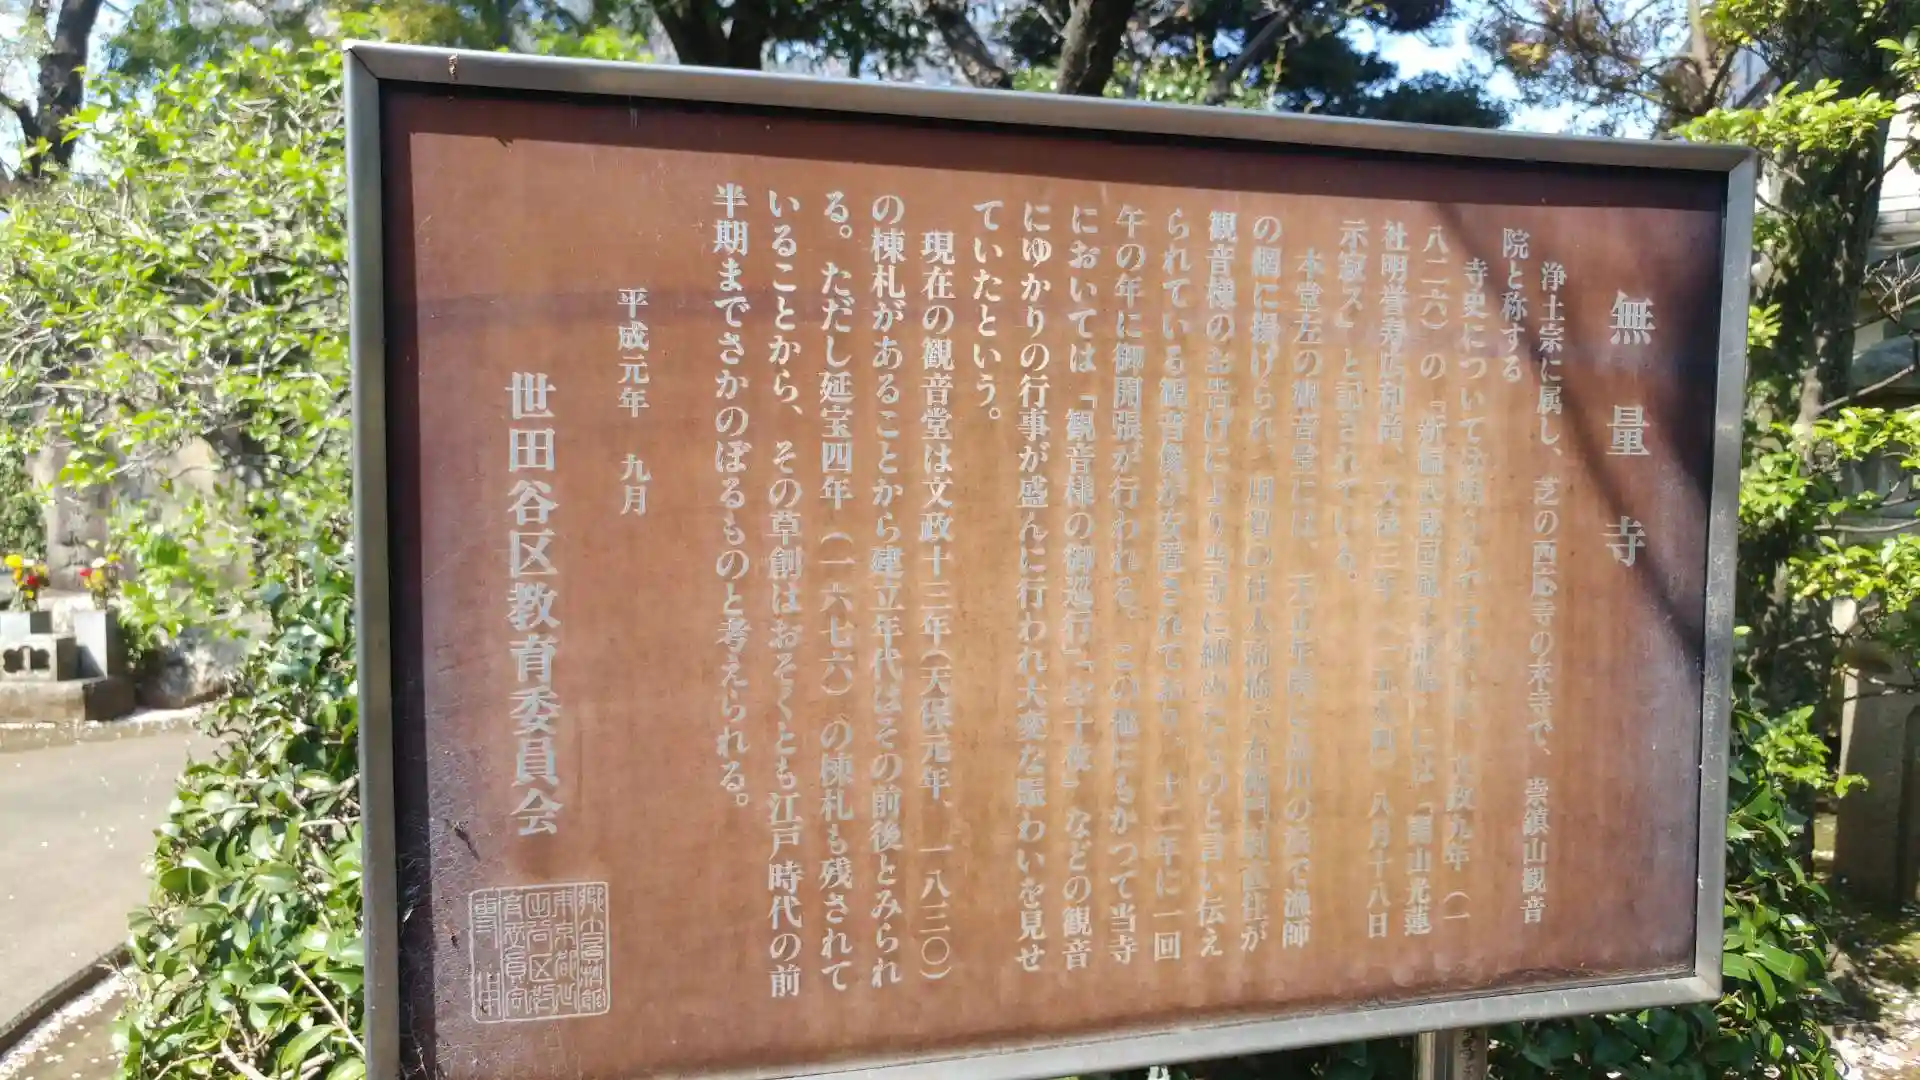 無量寺
浄土宗に属し、芝の西応寺の末寺で、崇鎮山観音
院と称する
寺史については明らかではないが、文政九年（一
八二六）の『新編武蔵国風土記稿』には「開山光蓮
社明誉寿広和尚、文禄三年（一五九四）八月十八日
示寂ス」と記されている。
本堂左の観音堂には、天正年間に品川の浜で漁師
の網に揚げられ、用賀の住人高橋六右衛門尉直住が
観音様のお告げにより当寺に納めたものと言い伝え
られている観音像が安置されており、十二年に一回
午の年に御開張が行われる。この他にもかつて当寺
においては「観音様の御巡行」「お十夜」などの観音
にゆかりの行事が盛んに行われ大変な賑わいを見せ
ていたという。
現在の観音堂は文政十三年（天保元年、一八三〇）
の棟札があることから建立年代はその前後とみられ
る。ただし延宝四年（一六七六）の棟札も残されて
いることから、その草創はおそくとも江戸時代の前
半期までさかのぼるものと考えられる。
平成元年 九月
世田谷区教育委員会